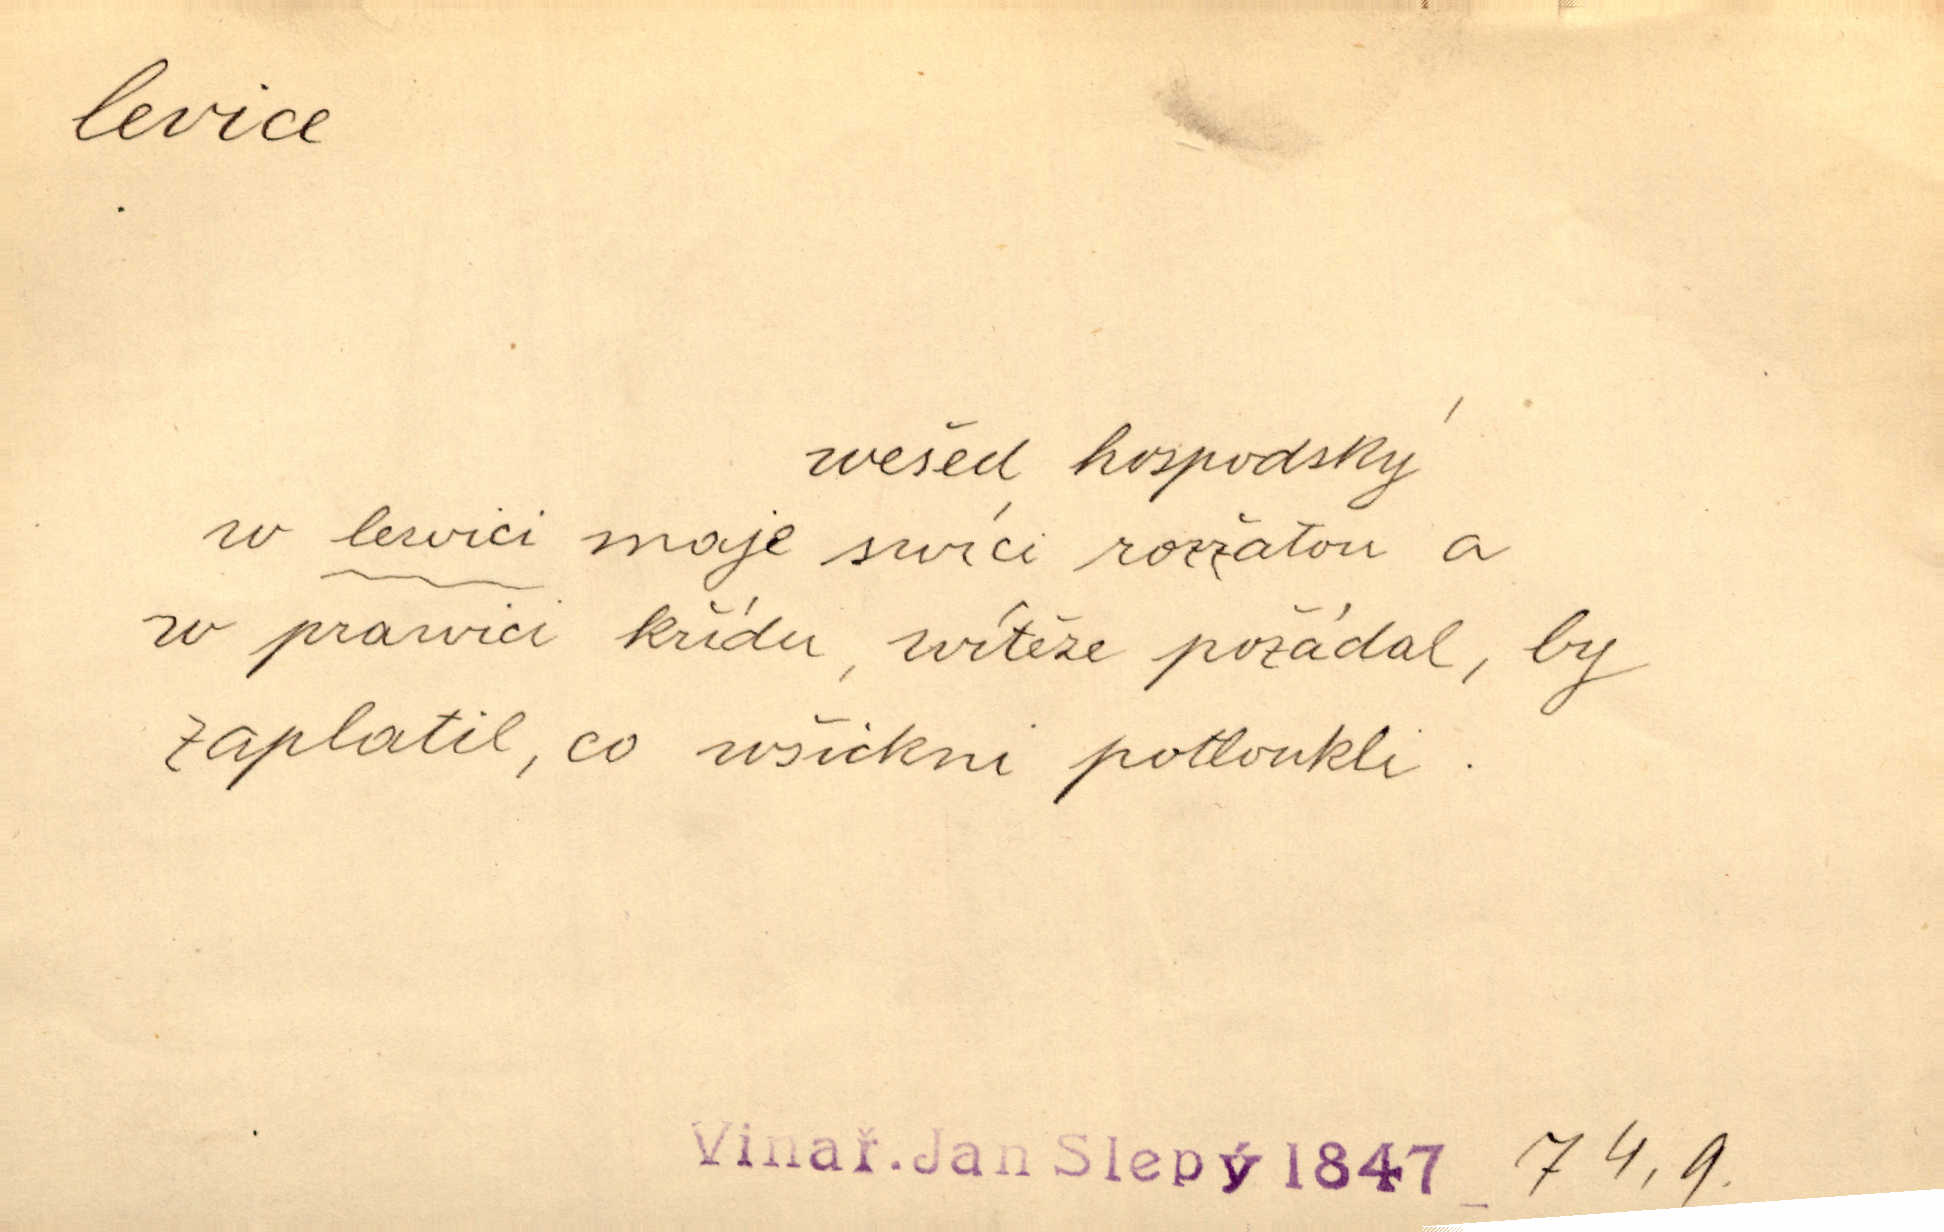 levice
wešed hospodský
w lewici maje swíci rozžatou a
w prawici křídu, wítěze požádal, by
zaplatil, co wšickni potloukli.
Vinař. Jan Slepý 1847_ 74, 9.